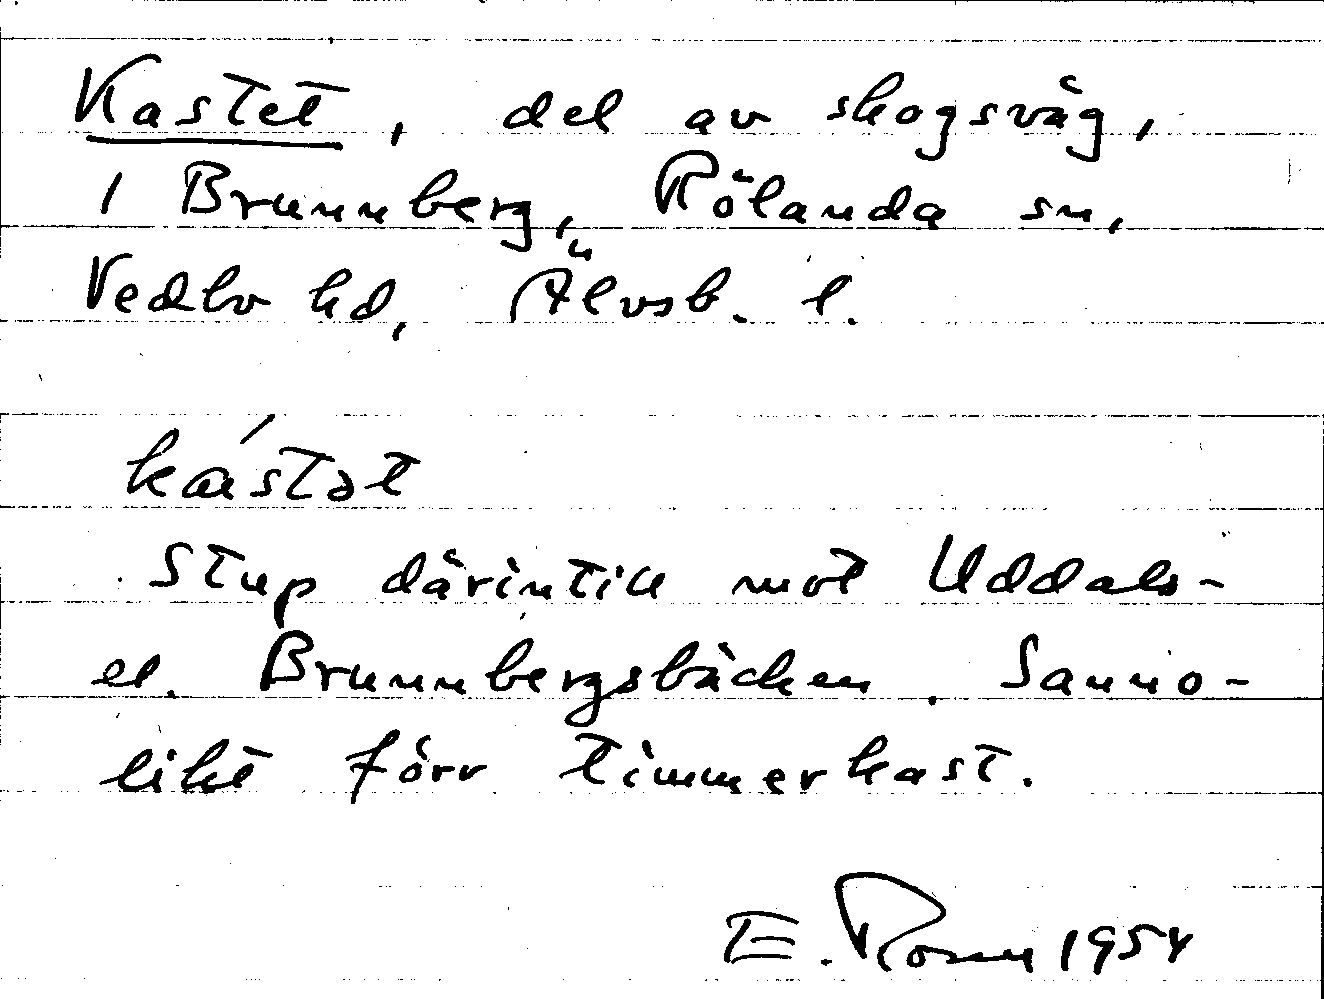 Kastet, del av skogsväg,
1 Brunnberg, Rölanda sn,
Vedbo hd, Älvsb. l.
kástət
Stup därintill mot Uddals-
el. Brunnbergsbäcken. Sanno-
likt förr timmerkast.
E. Rosen 1954